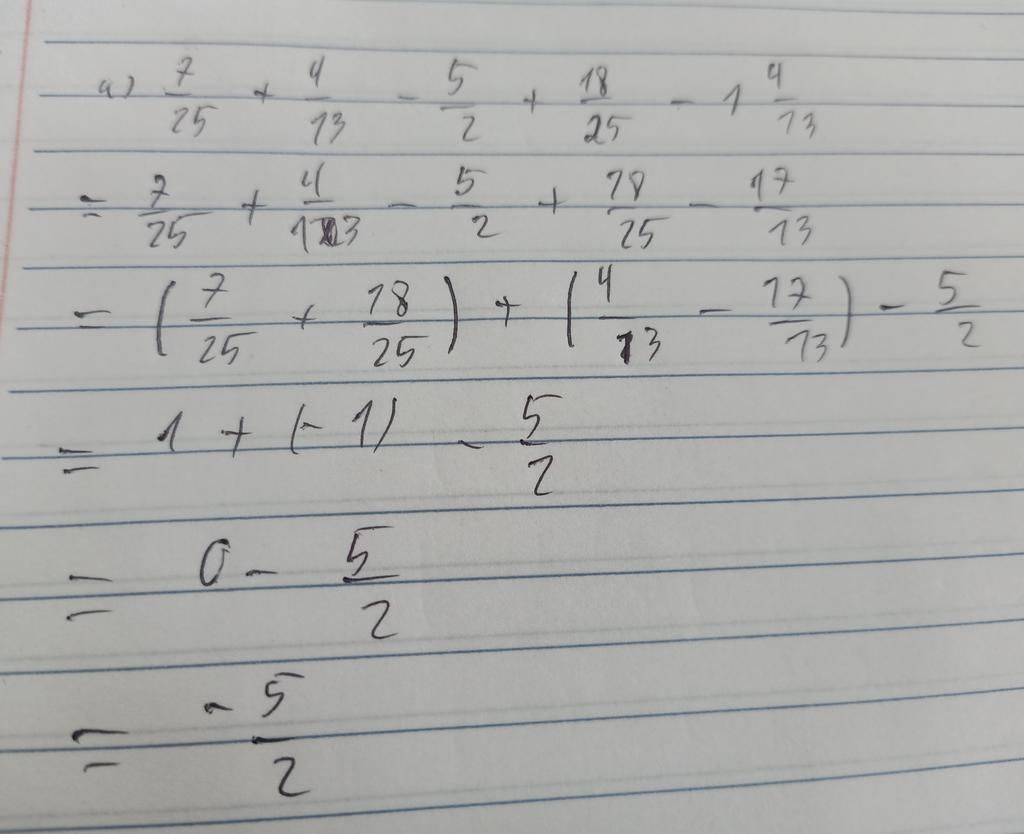 a) 7/25 + 4/13 - 5/2 + 18/25 - 1 4/13
= 7/25 + 4/13 - 5/2 + 18/25 - 17/13
= (7/25 + 18/25) + (4/13 - 17/13) - 5/2
= 1 + (-1) - 5/2
= 0 - 5/2
= -5/2